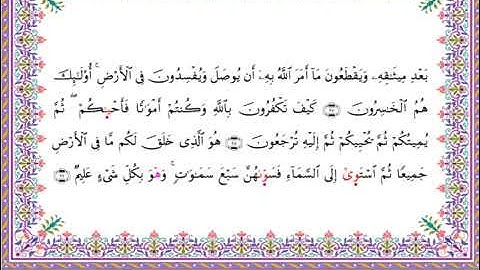 بَعْدِ مِيثَٰقِهِۦ وَيَقْطَعُونَ مَآ أَمَرَ ٱللَّهُ بِهِۦٓ أَن يُوصَلَ وَيُفْسِدُونَ فِى ٱلْأَرْضِ ۚ أُو۟لَٰٓئِكَ
هُمُ ٱلْخَٰسِرُونَ ۝ كَيْفَ تَكْفُرُونَ بِٱللَّهِ وَكُنتُمْ أَمْوَٰتًا فَأَحْيَٰكُمْ ۖ ثُمَّ
يُمِيتُكُمْ ثُمَّ يُحْيِيكُمْ ثُمَّ إِلَيْهِ تُرْجَعُونَ ۝ هُوَ ٱلَّذِى خَلَقَ لَكُم مَّا فِى ٱلْأَرْضِ
جَمِيعًا ثُمَّ ٱسْتَوَىٰٓ إِلَى ٱلسَّمَآءِ فَسَوَّىٰهُنَّ سَبْعَ سَمَٰوَٰتٍ ۚ وَهْوَ بِكُلِّ شَىْءٍ عَلِيمٌ ۝